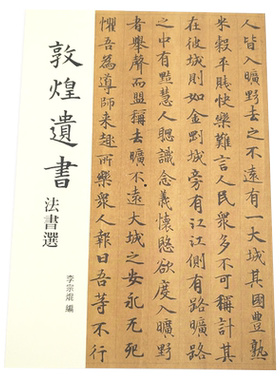 敦煌遺書
法書選
李宗焜 編
人皆入曠野去之不遠有一大城其國豊熟
米穀平賤快樂難言人民衆多不可稱計其
在彼城則如金剛城旁有江江側有路曠路
之中有黠慧人聰識念義懷愍欲度入曠野
者舉聲而盟稱去曠不遠大城之安永无死
懼吾為導師来趣所樂衆人報曰吾等不行